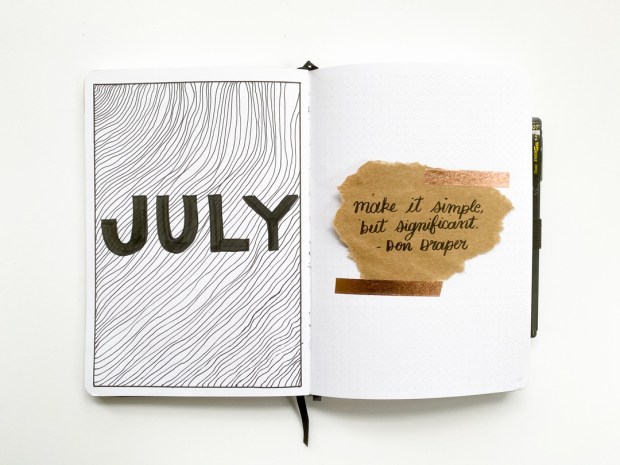 JULY
make it simple,
but significant.
- Don Draper